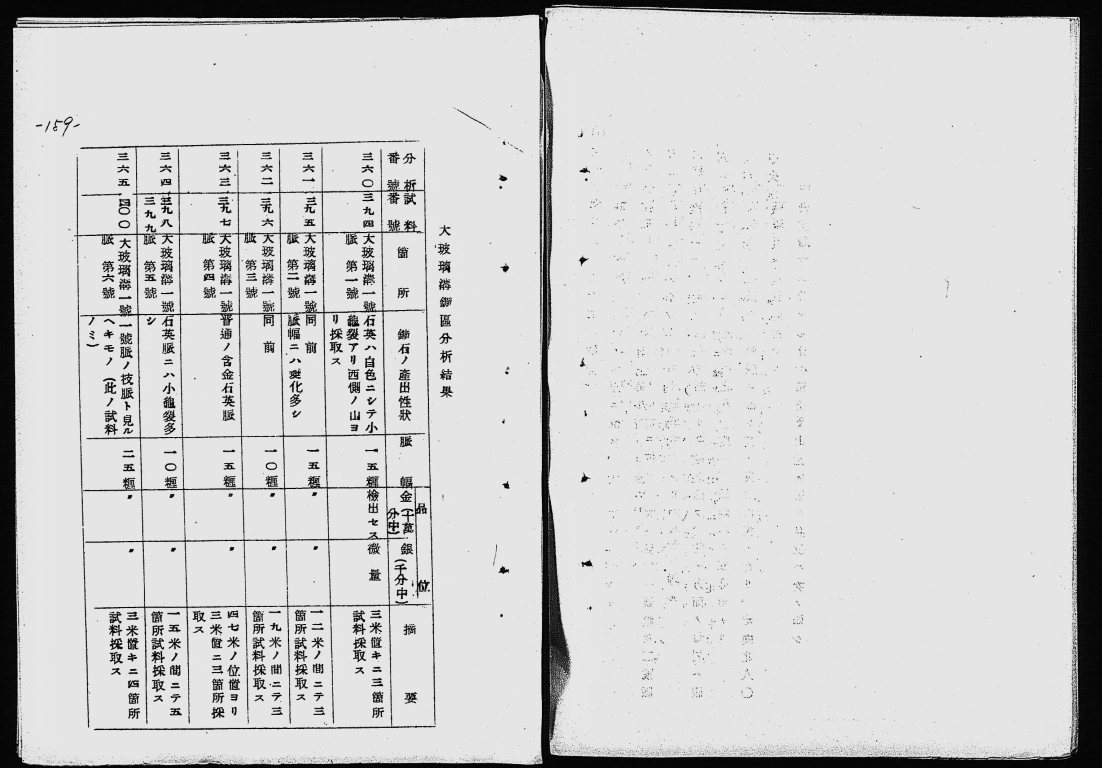 -159-
大玻璃溝鑛區分析結果
分析番號
試料番號
箇所
鑛石ノ產出性狀
脈幅
品位
金(十萬分中)
銀(千分中)
摘要
三六〇
三九四
大玻璃溝一號
脈 第一號
石英ハ白色ニシテ小
龜裂アリ西側ノ山ヨ
リ採取ス
一五糎
檢出セス
微量
三米置キニ三箇所
試料採取ス
三六一
三九五
大玻璃溝一號
脈 第二號
同前
脈幅ニハ變化多シ
一五糎
〃
〃
一二米ノ間ニテ三
箇所試料採取ス
三六二
三九六
大玻璃溝一號
脈 第三號
同前
一〇糎
〃
〃
一九米ノ間ニテ三
箇所試料採取ス
三六三
三九七
大玻璃溝一號
脈 第四號
普通ノ含金石英脈
一五糎
〃
〃
四七米ノ位置ヨリ
三米置ニ三箇所採
取ス
三六四
三九八
三九九
大玻璃溝一號
脈 第五號
石英脈ニハ小龜裂多
シ
一〇糎
〃
〃
一五米ノ間ニテ五
箇所試料採取ス
三六五
四〇〇
大玻璃溝一號
脈 第六號
一號脈ノ枝脈ト見ル
ヘキモノ(此ノ試料
ノミ)
二五糎
〃
〃
三米置キニ四箇所
試料採取ス